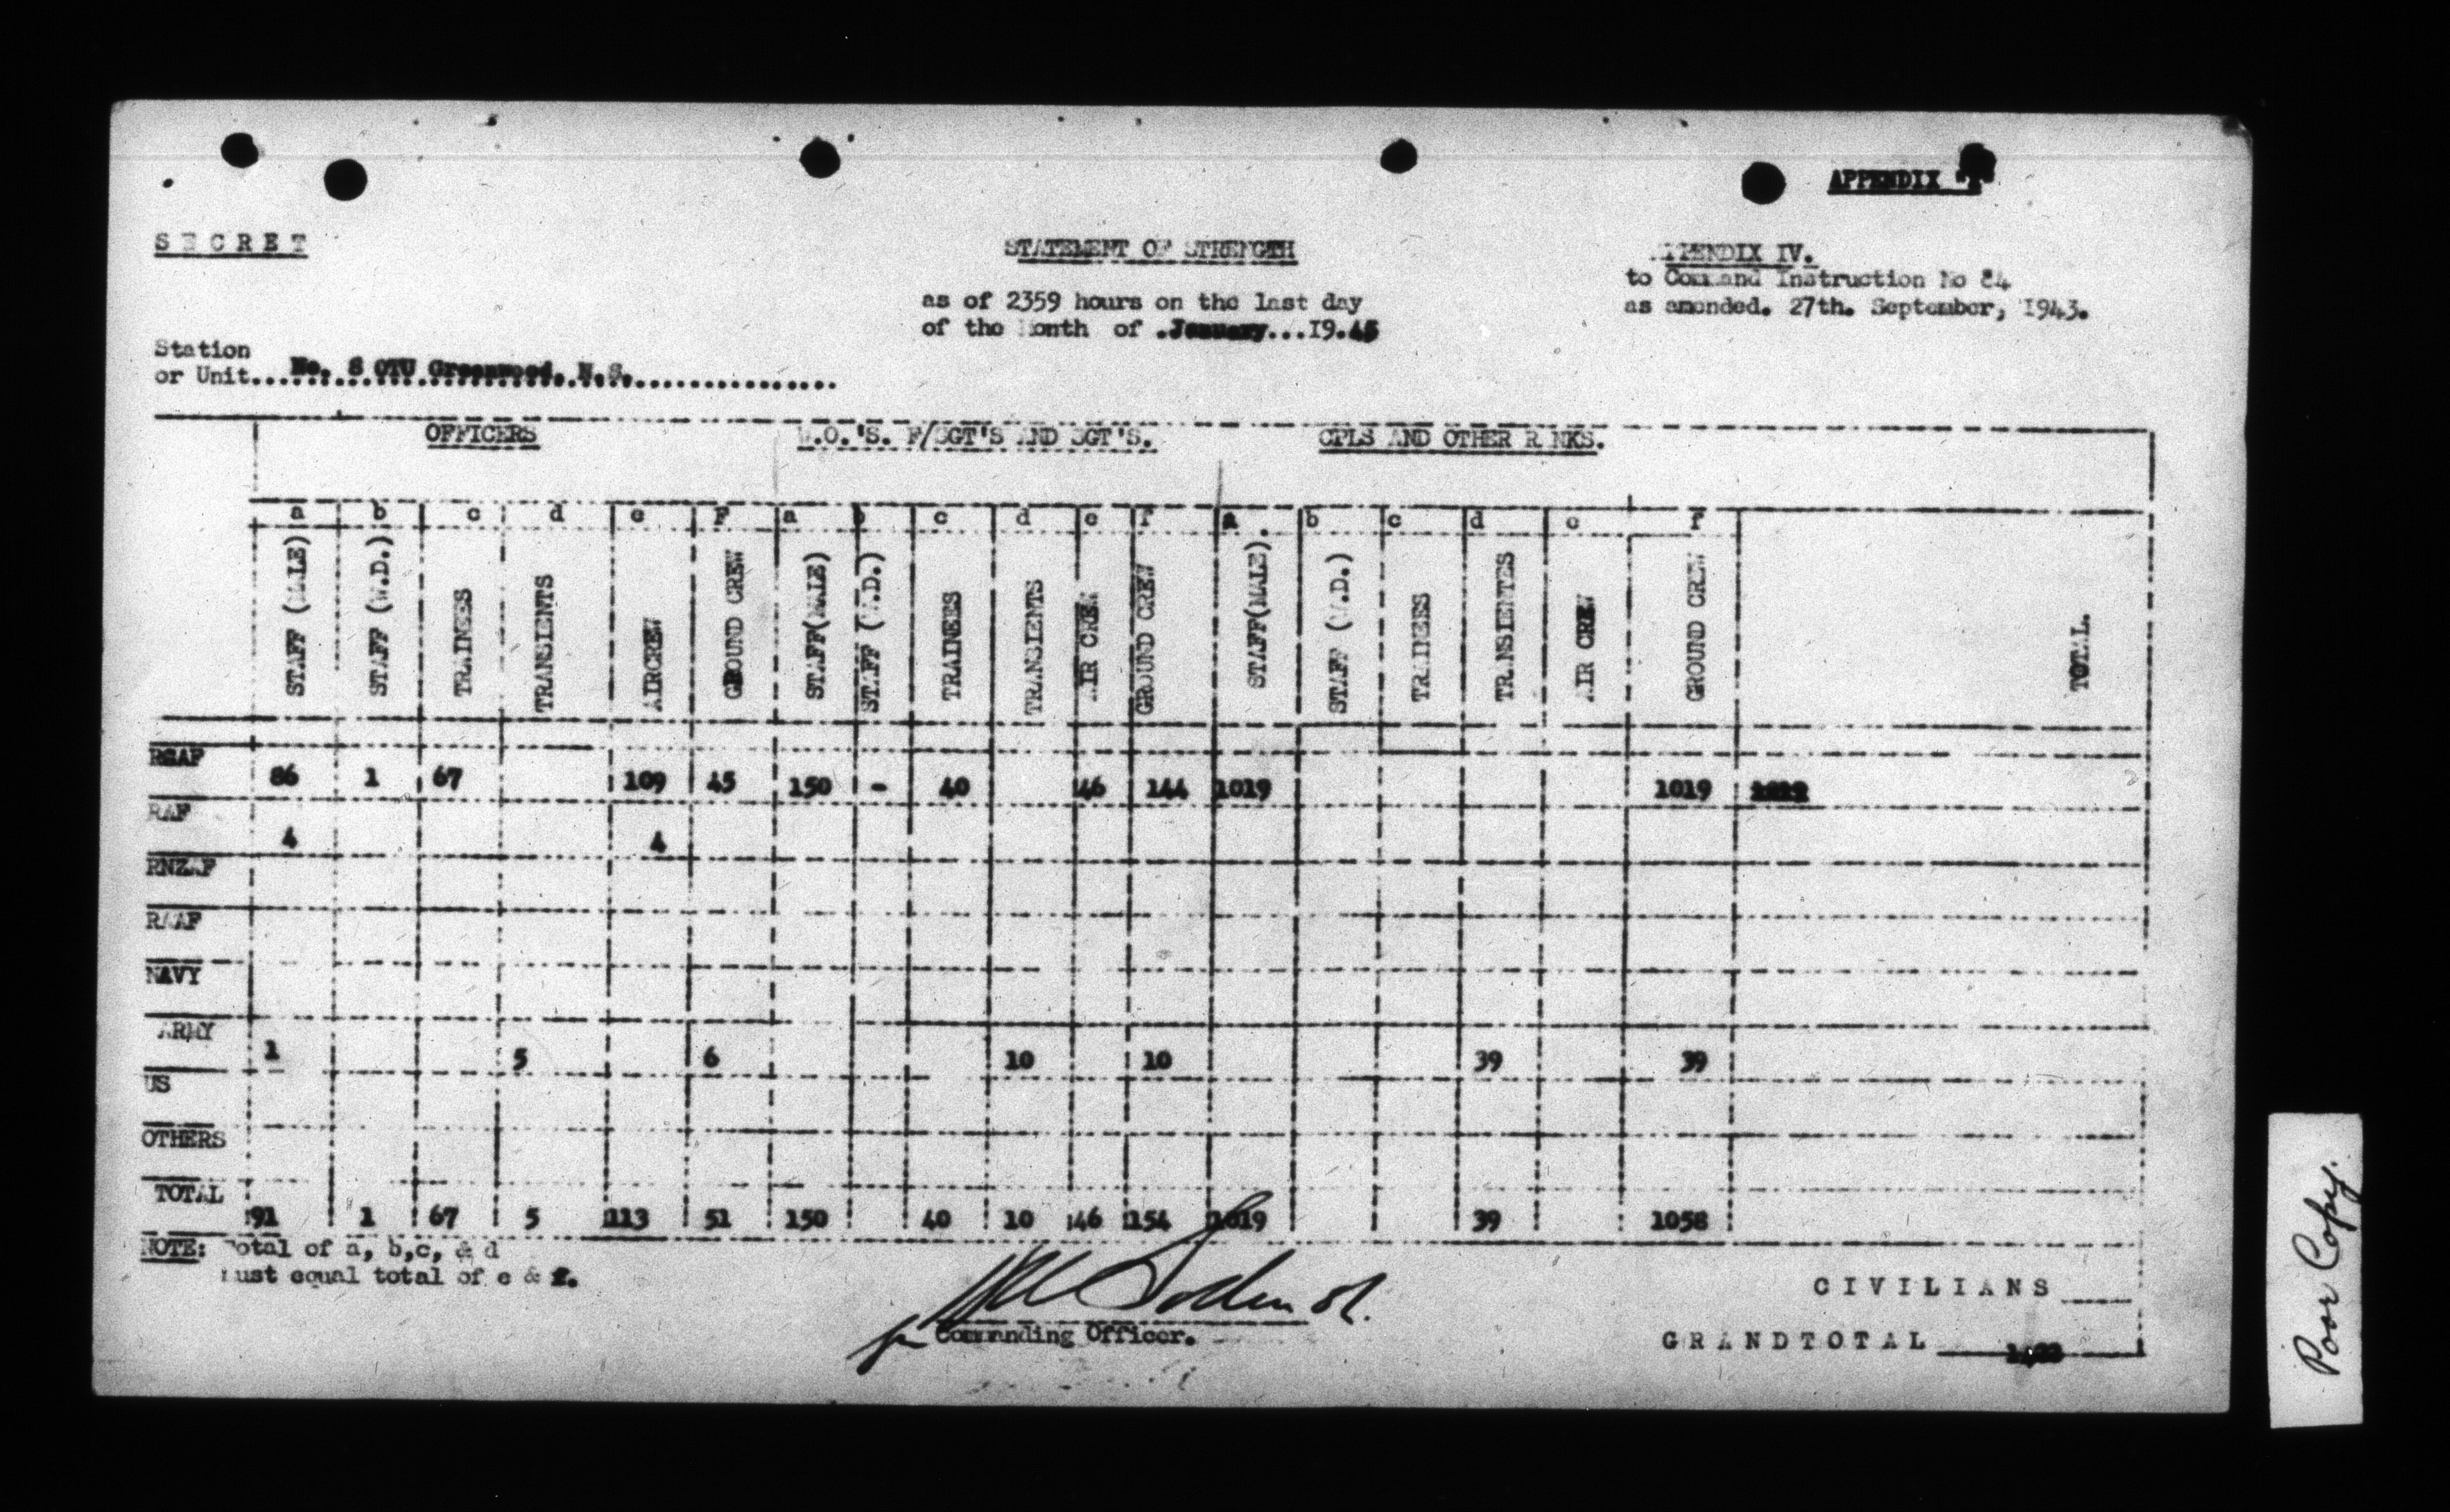 APPENDIX
SECRET
STATEMENT OF STRENGTH
APPENDIX IV.
to Command Instruction No 84
as amended. 27th. September, 1943.
as of 2359 hours on the last day
of the Month of .January...19.45
Station
or Unit....No. 8 OTU Greenwood, N.S.
OFFICERS W.O.'S. F/SGT'S AND SGT'S. CPLS AND OTHER RANKS.
a b c d e F a b c d e F a b c d e F
STAFF (MALE) STAFF (W.D.) TRAINEES TRANSIENTS AIRCREW GROUND CREW STAFF(MALE) STAFF (W.D.) TRAINEES TRANSIENTS AIR CREW GROUND CREW STAFF(MALE). STAFF (W.D.) TRAINEES TRANSIENTES AIR CREW GROUND CREW TOTAL.
RCAF 86 1 67 109 45 150 - 40 46 144 1019 1019
RAF 4 4
RNZAF
RAAF
NAVY
ARMY 1 5 6 10 10 39 39
US
OTHERS
TOTAL 91 1 67 5 113 51 150 40 10 46 154 1019 39 1058
NOTE: Total of a, b,c, & d
must equal total of e & f.
for Commanding Officer.
CIVILIANS
GRANDTOTAL
Poor Copy.